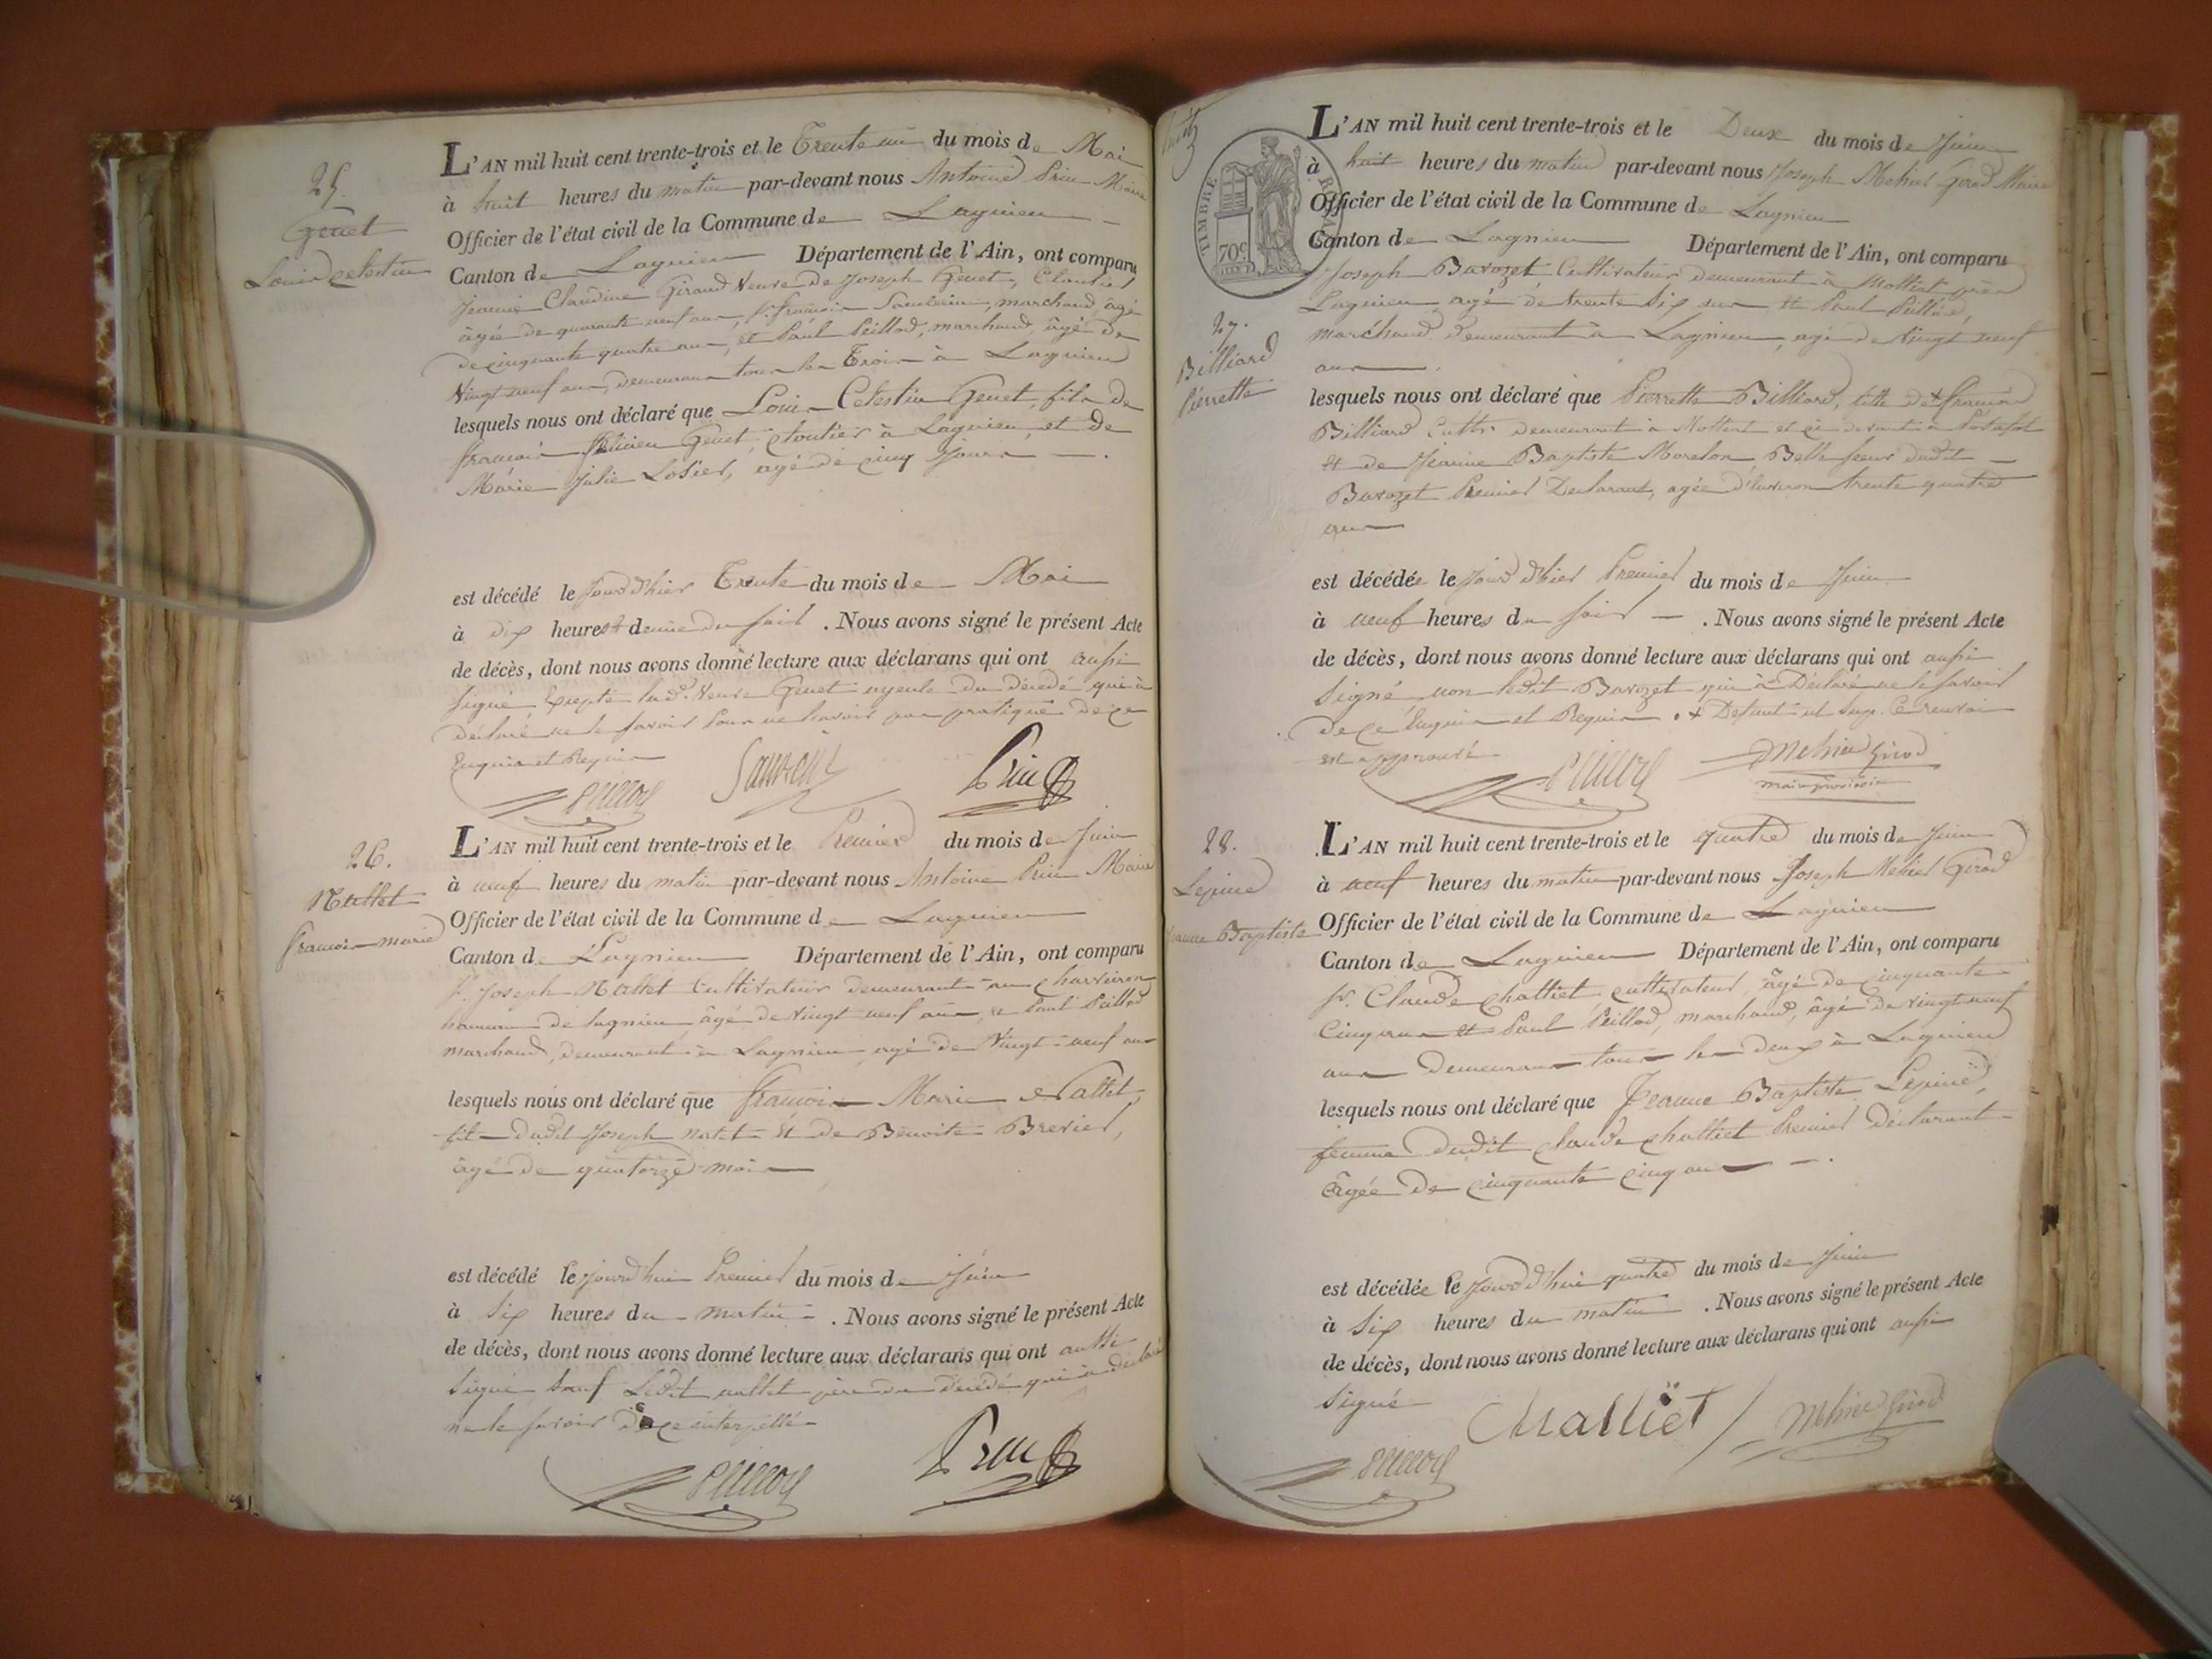 25.
Genet
Louis Celestin
L'AN mil huit cent trente-trois et le Trente un du mois de Mai
à huit heures du matin par-devant nous Antoine Prin Maire
Officier de l'état civil de la Commune de Lagnieu
Canton de Lagnieu Département de l'Ain, ont comparu
Jeanne Claudine Giraud Veuve de Joseph Genet,
âgée de quarante neuf ans, Sr. françois marchand, âgé
de cinquante quatre ans, et Paul Peillod, marchand, âgé de
Vingt neuf ans, demeurans tous les Trois à Lagnieu
lesquels nous ont déclaré que Louis Celestin Genet, fils de
françois Genet cloutier à Lagnieu, et de
Marie Julie Losier, agé de cinq Jours
est décédé le Jourd'hier Trente du mois de Mai
à dix heures & demie du soir . Nous avons signé le présent Acte
de décès, dont nous avons donné lecture aux déclarans qui ont aussi
signé Excepté lade. Veuve Genet ayeule du décédé qui à
déclaré ne le savoir pour ne l'avoir pas pratiqué de ce
Enquis et Requis
Peillod
Prin
26.
Nallet
françois marie
L'AN mil huit cent trente-trois et le Premier du mois de Juin
à neuf heures du matin par-devant nous Antoine Prin Maire
Officier de l'état civil de la Commune de Lagnieu
Canton de Lagnieu Département de l'Ain, ont comparu
Sr. Joseph Nallet Cultivateur demeurant au
hameau de Lagnieu âgé de Vingt neuf ans, et Paul Peillod
marchand, demeurant à Lagnieu, agé de Vingt-neuf ans
lesquels nous ont déclaré que françois Marie Nallet,
fils dudit Joseph nallet et de Benoite Brevier,
âgé de quatorze mois
est décédé le Jourd'hui Premier du mois de Juin
à Six heures du matin . Nous avons signé le présent Acte
de décès, dont nous avons donné lecture aux déclarans qui ont aussi
Signé Sauf Ledit nallet père du décédé qui à déclaré
ne le savoir de ce interpellé
Peillod
Prin
TIMBRE ROYAL
70c.
27.
Billiard
Pierrette
L'AN mil huit cent trente-trois et le Deux du mois de Juin
à huit heures du matin par-devant nous Joseph Mehier Girod Maire
Officier de l'état civil de la Commune de Lagnieu
Canton de Lagnieu Département de l'Ain, ont comparu
Joseph Barozet Cultivateur demeurant à près
Lagnieu, agé de trente Six ans et Paul Peillod,
marchand demeurant à Lagnieu, agé de Vingt neuf
ans
lesquels nous ont déclaré que Pierrette Billiard, fille de + françois
Billiard Cultr. demeurant à
et de Jeanne Baptiste Morelon, Belle soeur dudit
Barozet Premier Déclarant, agée d'Environ trente quatre
ans
est décédée le Jourd'hier Premier du mois de Juin
à neuf heures du soir . Nous avons signé le présent Acte
de décès, dont nous avons donné lecture aux déclarans qui ont aussi
Signé non ledit Barozet qui à Déclaré ne le savoir
de ce Enquis et Requis. + Defunt Ce renvoi
est approuvé
Peillod
Mehier Girod
28.
Lepine
Jeanne Baptiste
L'AN mil huit cent trente-trois et le quatre du mois de Juin
à neuf heures du matin par-devant nous Joseph Mehier Girod
Officier de l'état civil de la Commune de Lagnieu
Canton de Lagnieu Département de l'Ain, ont comparu
Sr. Claude Challiet cultivateur, âgé de cinquante
Cinq ans et Paul Peillod, marchand, âgé de vingt neuf
ans demeurans tous les deux à Lagnieu
lesquels nous ont déclaré que Jeanne Baptiste Lepine,
femme dudit Claude Challiet Premier Déclarant
âgée de cinquante cinq ans
est décédée le Jourd'hui quatre du mois de Juin
à Six heures du matin . Nous avons signé le présent Acte
de décès, dont nous avons donné lecture aux déclarans qui ont aussi
Signé
Challiet
Mehier Girod
Peillod